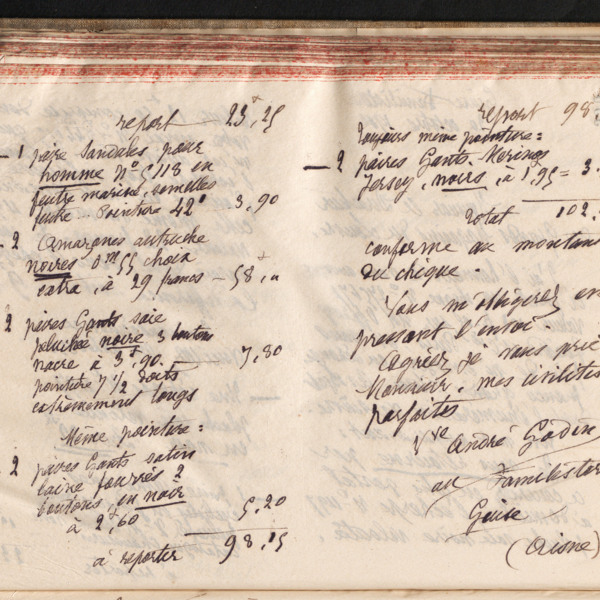 report — 23,25
— 1 paire Sandales pour
homme N° 5118 en
feutre marine, semelles
feutre. Pointure 42" 3,90
— 2 Amazones autruche
noires 0m55 choix
extra, à 29 francs — 58,"
2 paires Gants soie
peluchée noire 3 boutons
nacre à 3f,90. — 7,80
pointure 7 1/2 doigts
extrêmement longs
Même pointure :
— 2 paires Gants satin
laine fourrés 2
boutons, en noir
à 2f60 5,20
à reporter 98,15
report 98.
Toujours même pointure :
— 2 paires Gants Mérinos
Jersey, noirs, à 1,95 = 3.
Total 102.
conforme au montant
du chèque.
Vous m'obligerez en
pressant l'envoi.
Agréez, je vous prie
Monsieur, mes civilités
parfaites
Vve André Godin
au Familistère
Guise
(Aisne)